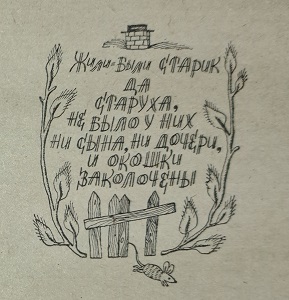 Жили-были старик
да
старуха,
не было у них
ни сына, ни дочери,
и окошки
заколочены